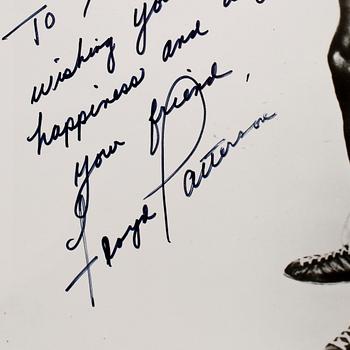 To
wishing you
happiness and
your friend,
Floyd Patterson